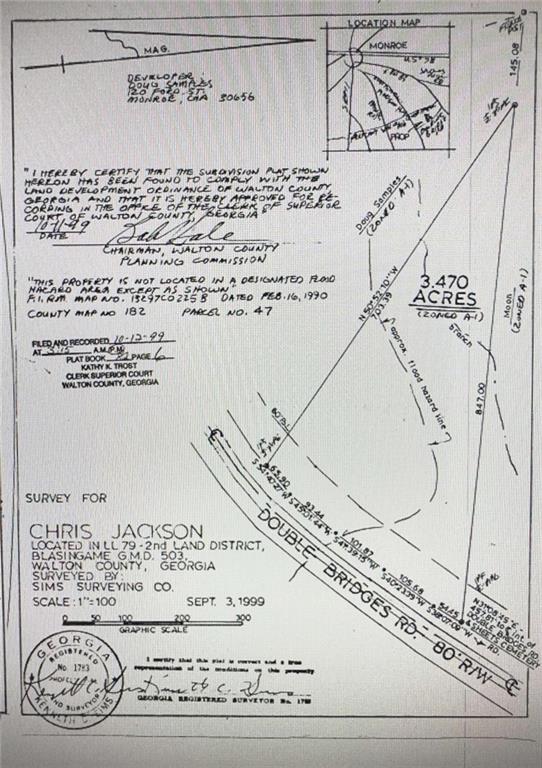 MAG.
LOCATION MAP
MONROE
U.S. 78
PROP
DEVELOPER:
DOUG SAMPLES
120 FORD ST.
MONROE, GA 30656
"I HEREBY CERTIFY THAT THE SUBDIVISION PLAT SHOWN
HEREON HAS BEEN FOUND TO COMPLY WITH THE
LAND DEVELOPMENT ORDINANCE OF WALTON COUNTY
GEORGIA AND THAT IT IS HEREBY APPROVED FOR RE-
CORDING IN THE OFFICE OF THE CLERK OF SUPERIOR
COURT OF WALTON COUNTY, GEORGIA"
DATE
CHAIRMAN, WALTON COUNTY
PLANNING COMMISSION
"THIS PROPERTY IS NOT LOCATED IN A DESIGNATED FLOOD
HAZARD AREA EXCEPT AS SHOWN"
F.I.R.M. MAP NO. 13297C0225B DATED FEB. 16, 1990
COUNTY MAP NO 182 PARCEL NO. 47
FILED AND RECORDED 10-12-99
AT 3:15 A.M./P.M.
PLAT BOOK 82 PAGE 6
KATHY K. TROST
CLERK SUPERIOR COURT
WALTON COUNTY, GEORGIA
145.08
Doug Samples
(ZONED A-1)
N 50°52'10"W
703.39
3.470
ACRES
(ZONED A-1)
branch
approx. flood hazard line
Moon
(ZONED A-1)
847.00
65.90
93.44
101.87
105.68
54.45
DOUBLE BRIDGES RD. - 80' R/W
SURVEY FOR
CHRIS JACKSON
LOCATED IN LL 79 - 2nd LAND DISTRICT,
BLASINGAME G.M.D. 503,
WALTON COUNTY, GEORGIA
SURVEYED BY:
SIMS SURVEYING CO.
SCALE: 1"=100 SEPT. 3, 1999
0 50 100 200 300
GRAPHIC SCALE
GEORGIA
REGISTERED
No. 1783
LAND SURVEYOR
KENNETH C. SIMS
I certify that this plat is correct and a true
representation of the conditions on this property
GEORGIA REGISTERED SURVEYOR No. 1783